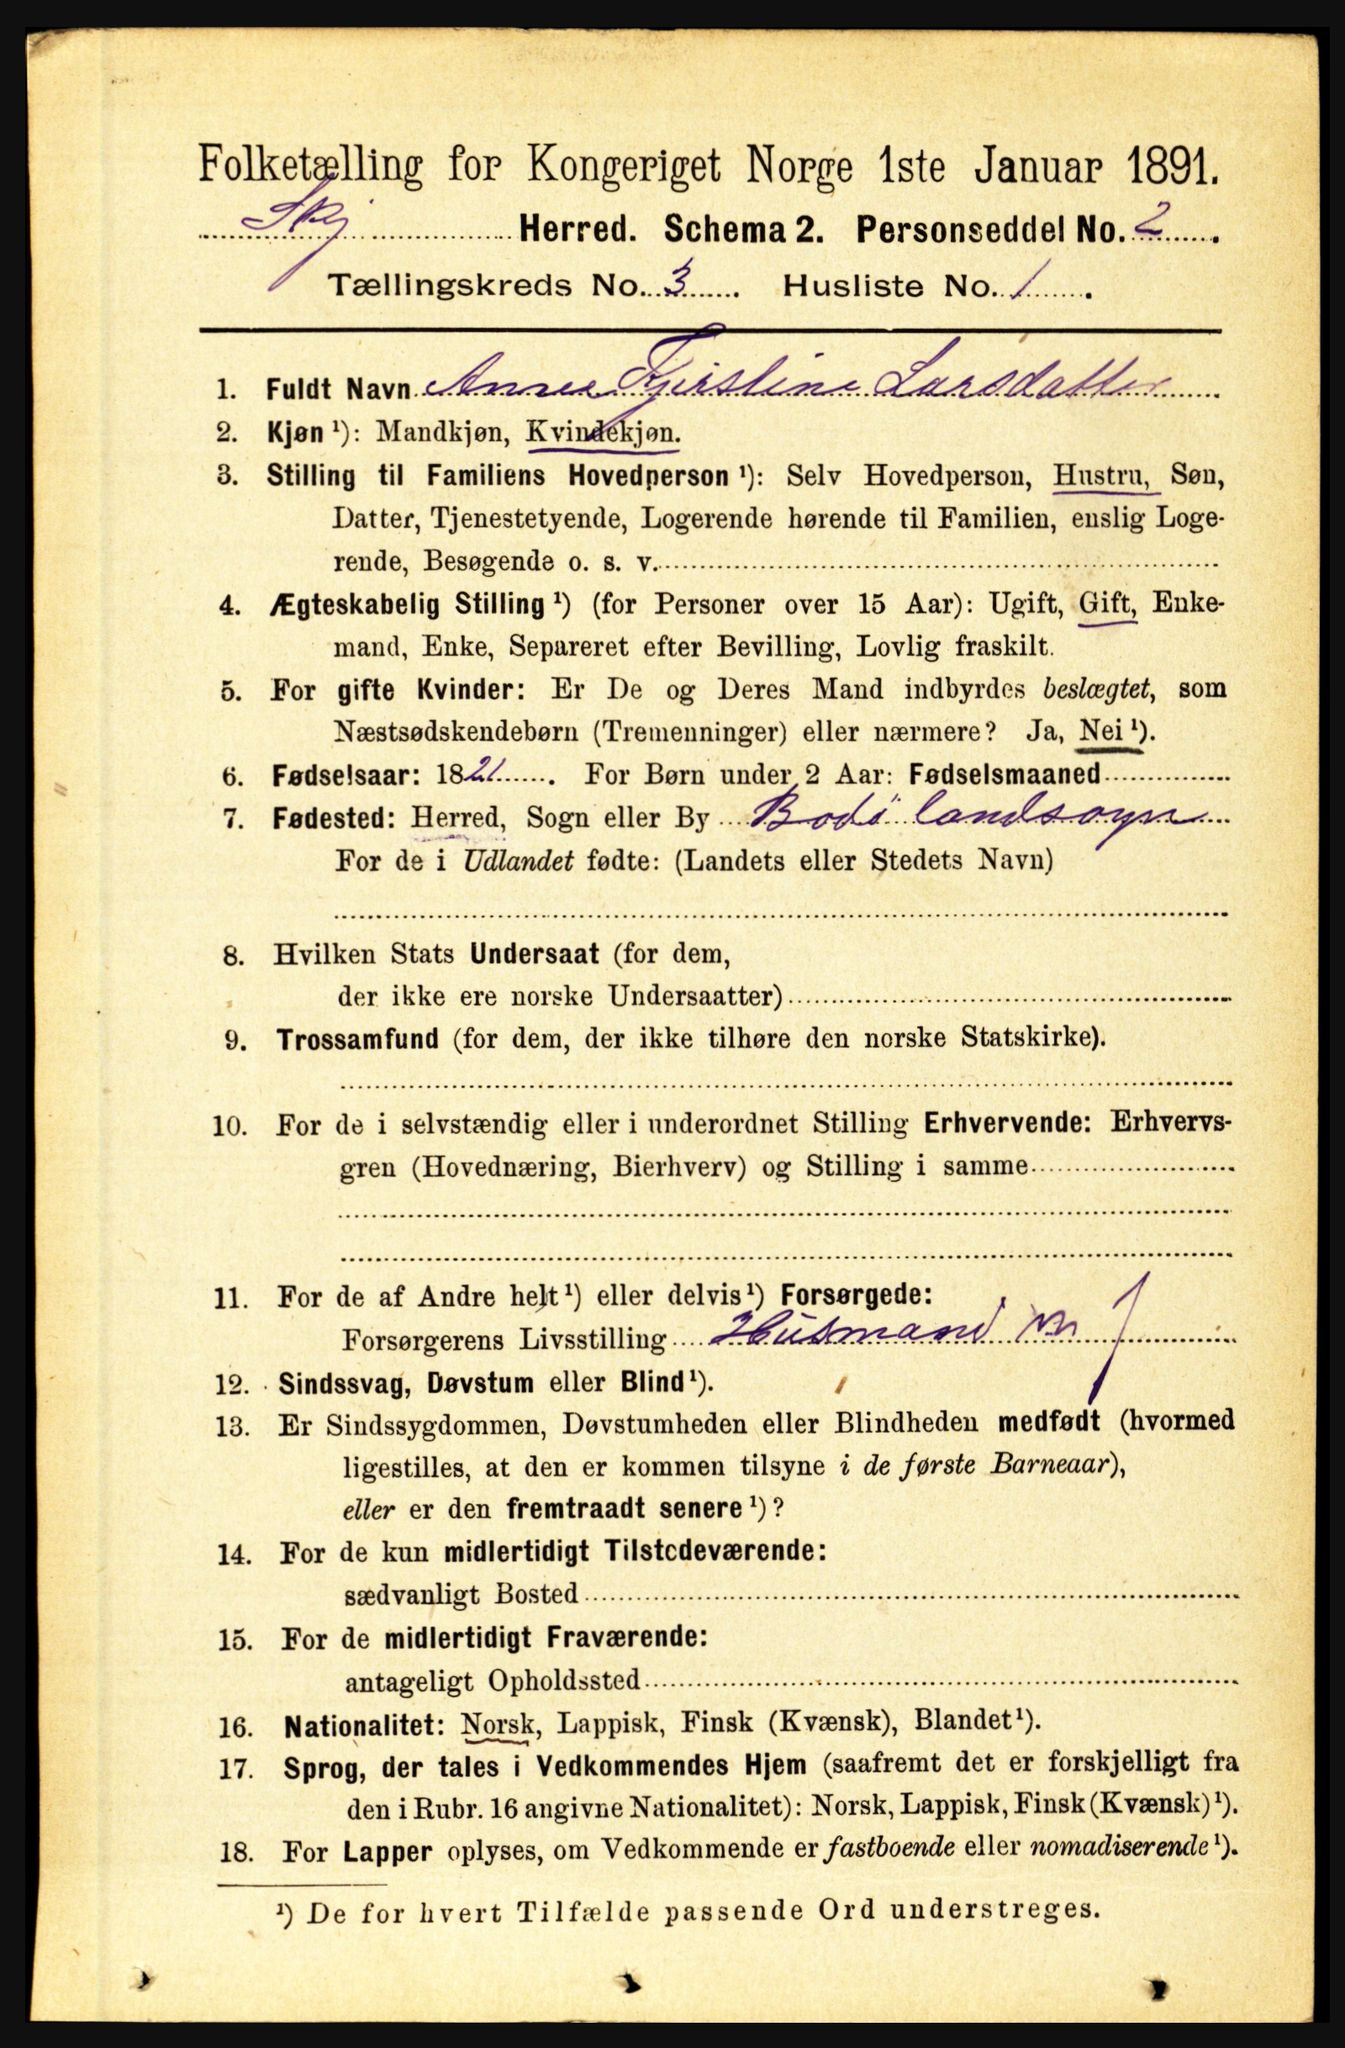 Folketælling for Kongeriget Norge 1ste Januar 1891.
Skj Herred. Schema 2. Personseddel No. 2.
Tællingskreds No. 3. Husliste No. 1.
1. Fuldt Navn Anne Kjirstine Larsdatter
2. Kjøn ¹): Mandkjøn, Kvindekjøn.
3. Stilling til Familiens Hovedperson ¹): Selv Hovedperson, Hustru, Søn,
Datter, Tjenestetyende, Logerende hørende til Familien, enslig Loge-
rende, Besøgende o. s. v.
4. Ægteskabelig Stilling ¹) (for Personer over 15 Aar): Ugift, Gift, Enke-
mand, Enke, Separeret efter Bevilling, Lovlig fraskilt.
5. For gifte Kvinder: Er De og Deres Mand indbyrdes beslægtet, som
Næstsødskendebørn (Tremenninger) eller nærmere? Ja, Nei ¹).
6. Fødselsaar: 1821. For Børn under 2 Aar: Fødselsmaaned
7. Fødested: Herred, Sogn eller By Bodö landsogn
For de i Udlandet fødte: (Landets eller Stedets Navn)
8. Hvilken Stats Undersaat (for dem,
der ikke ere norske Undersaatter)
9. Trossamfund (for dem, der ikke tilhøre den norske Statskirke).
10. For de i selvstændig eller i underordnet Stilling Erhvervende: Erhvervs-
gren (Hovednæring, Bierhverv) og Stilling i samme
11. For de af Andre helt ¹) eller delvis ¹) Forsørgede:
Forsørgerens Livsstilling Husmand m j
12. Sindssvag, Døvstum eller Blind ¹).
13. Er Sindssygdommen, Døvstumheden eller Blindheden medfødt (hvormed
ligestilles, at den er kommen tilsyne i de første Barneaar),
eller er den fremtraadt senere ¹)?
14. For de kun midlertidigt Tilstedeværende:
sædvanligt Bosted
15. For de midlertidigt Fraværende:
antageligt Opholdssted
16. Nationalitet: Norsk, Lappisk, Finsk (Kvænsk), Blandet ¹).
17. Sprog, der tales i Vedkommendes Hjem (saafremt det er forskjelligt fra
den i Rubr. 16 angivne Nationalitet): Norsk, Lappisk, Finsk (Kvænsk) ¹).
18. For Lapper oplyses, om Vedkommende er fastboende eller nomadiserende ¹).
¹) De for hvert Tilfælde passende Ord understreges.